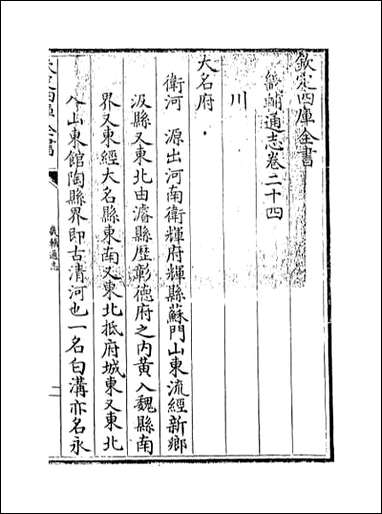 欽定四庫全書
畿輔通志卷二十四
川
大名府
衛河 源出河南衛輝府輝縣蘇門山東流經新鄉
汲縣又東北由濬縣歷彰德府之内黄入魏縣南
界又東經大名縣東南又東北抵府城東又東北
入山東館陶縣界即古清河也一名白溝亦名永
畿輔通志